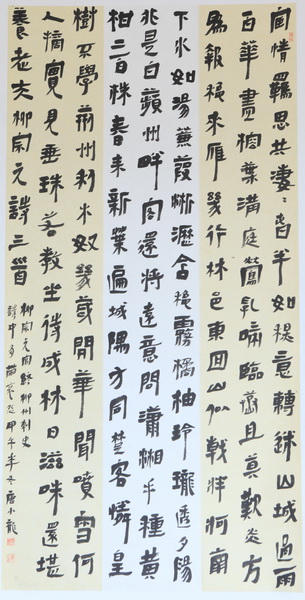 宦情羈思共凄〻春半如秋意轉迷山城過雨
百華盡榕葉滿庭鶯亂啼臨蒸且莫歎炎方
爲報秋來雁幾行林邑東回山似戟牂牁南
下水如湯蒹葭淅瀝含秋霧橘柚玲瓏透夕陽
非是白蘋州畔客還將遠意問瀟湘手種黃
柑二百株春來新葉遍城隅方同楚客憐皇
樹不學荊州利木奴幾歲開華聞噴雪何
人摘實見垂珠若教坐待成林日滋味還堪
養老夫柳宗元詩三首
柳宗元官終柳州刺史
詩中多描寫 甲午年冬唐小龍